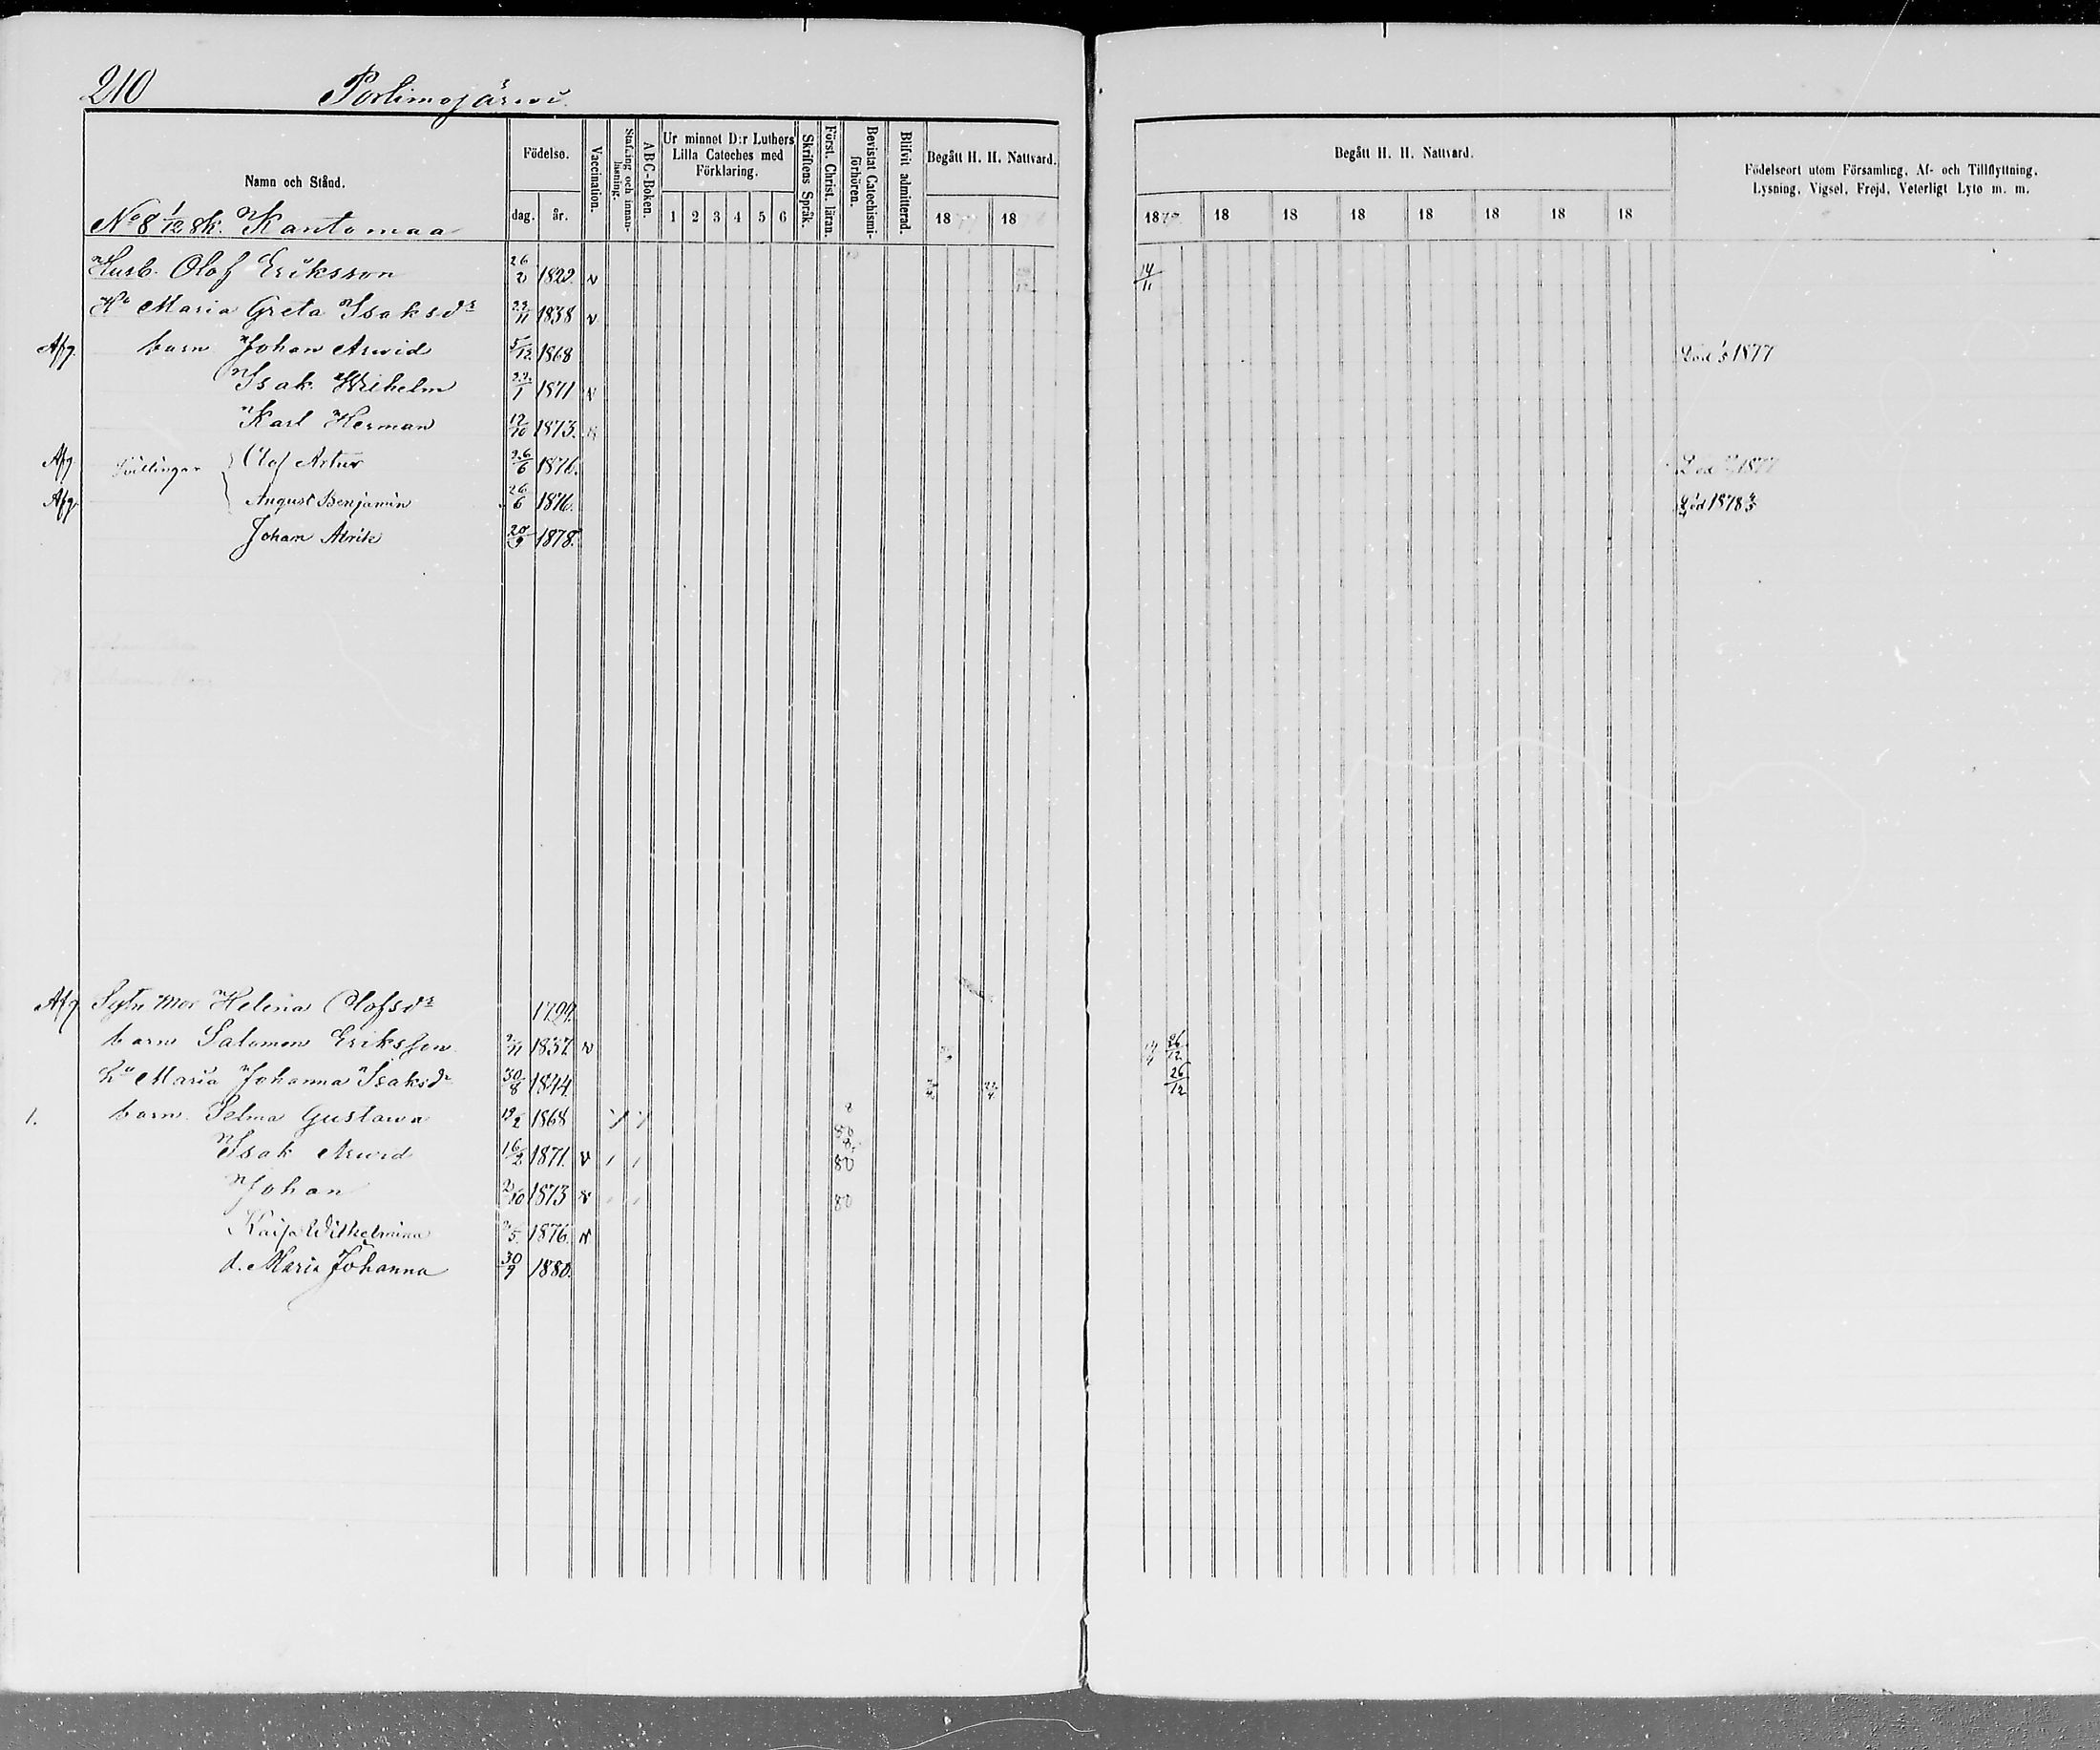 210 Portimojärwi.
Namn och Stånd.
Födelse.
dag. år.
Vaccination.
Stafning och innanläsning.
ABC-Boken.
Ur minnet D:r Luthers Lilla Cateches med Förklaring.
1 2 3 4 5 6
Skriftens Språk.
Först. Christ. läran.
Bevistat Catechismiförhören.
Blifvit admitterad.
Begått H. H. Nattvard.
18 18
Begått H. H. Nattvard.
1879 18 18 18 18 18 18 18
Födelseort utom Församling, Af- och Tillflyttning,
Lysning, Vigsel, Frejd, Veterligt Lyte m. m.
No 8 1/12 sk. Kantomaa
Husb. Olof Eriksson 26/2 1822. v 14/11
Ho Maria Greta Isaksdr 22/11 1838 v
Afg. barn Johan Arwid 5/12 1868 1877
Isak Wilhelm 22/1 1871 v
Karl Herman 12/10 1873.
Afg Tvillingar Olof Artur 26/6 1876. 1877
Afg. August Benjamin 26/6 1876. Död 1878
Joham Alrik 20/9 1878.
Afg Sytn. Mor Helena Olofsdr 1799.
barn Salomon Eriksson 1837 v 26/12
ho Maria Johanna Isaksdr 30/8 1844. 26/12
1. barn Selma Gustawa 1868
Isak Arwid 16/2 1871. v 80
Johan 1873 v 80
Kaisa Wilhelmina 1876. v
d. Maria Johanna 30/9 1880.